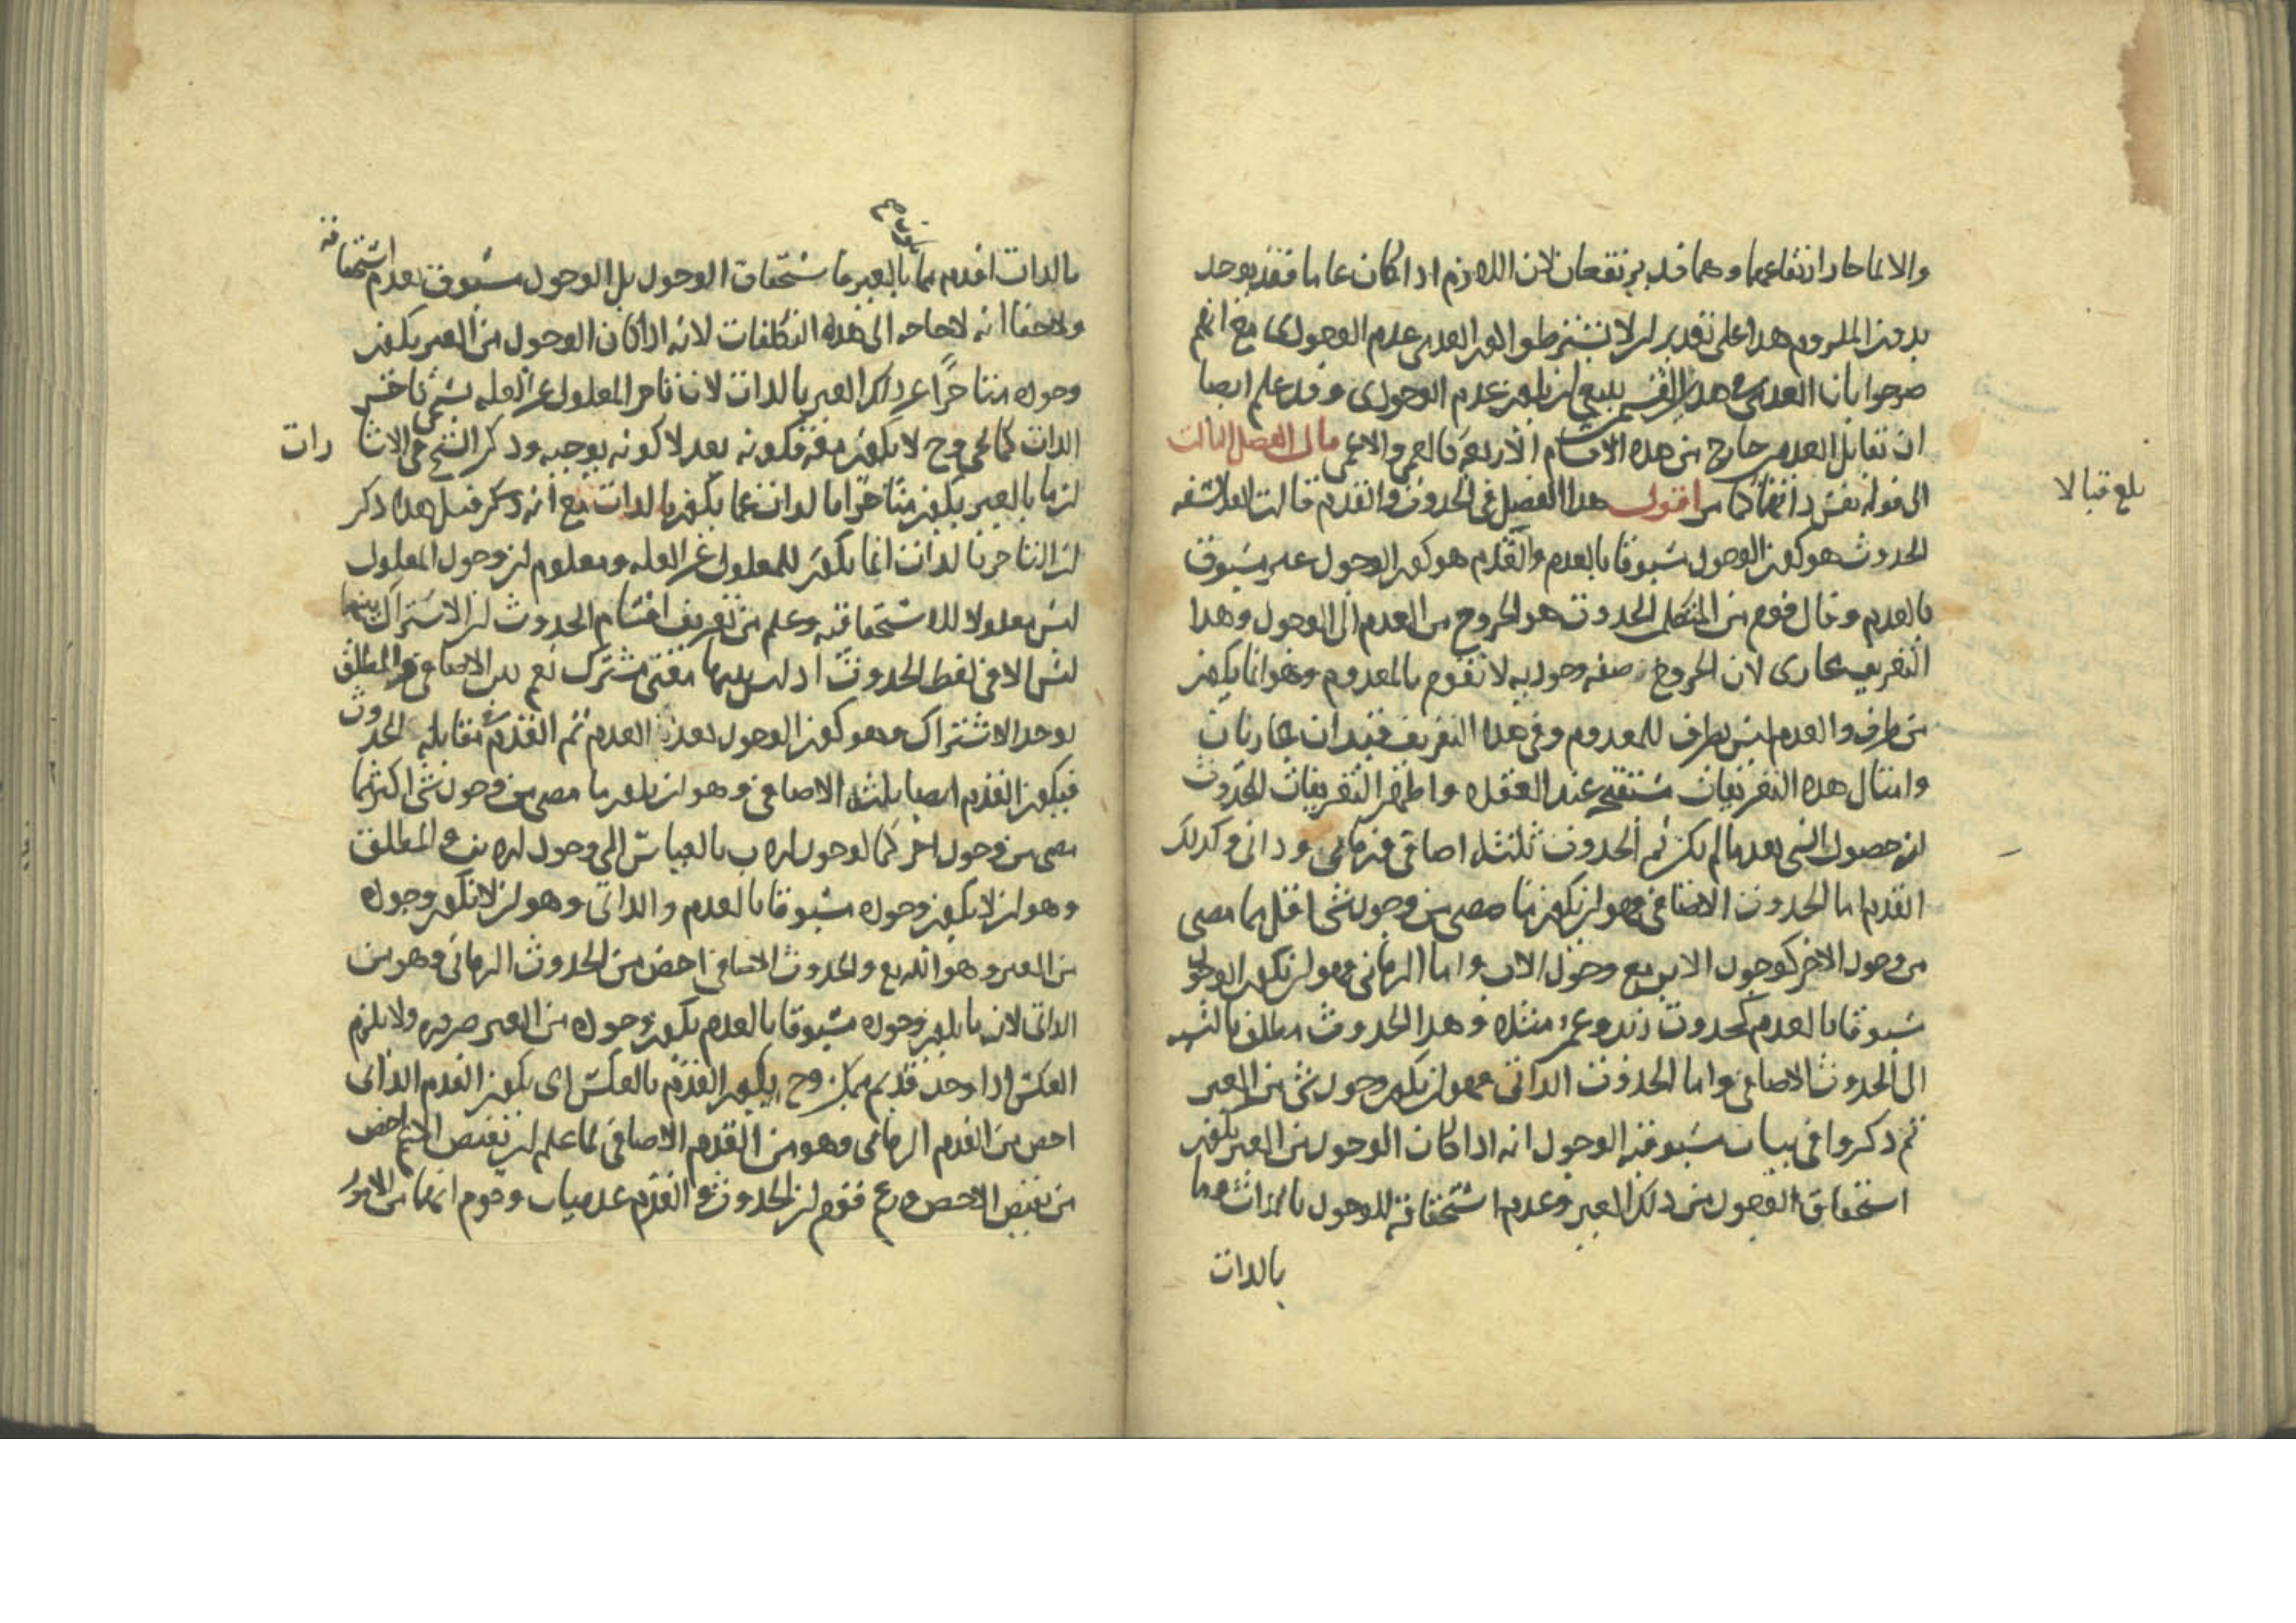 والا لما جاز ارتفاعهما وهما قد يرتفعان لان اللازم اذا كان عاما فقد يوجد
بدون الملزوم هذا على تقدير ان لا يشترطوا في العدمي عدم الوجودي مع انهم
صرحوا بان العدمي في هذا القسم ينبغي ان يكون عدم الوجودي وقد علم ايضا
ان تقابل العدمين خارج من هذه الاقسام الاربعة كالعمى والاعمى قال الفصل الثالث
الى قوله نفس ذاتها كما مر اقول هذا الفصل في الحدوث والقدم قالت الفلاسفه
الحدوث هو كون الوجود مسبوقا بالعدم والقدم هو كون الوجود غير مسبوق
بالعدم وقال قوم من المتكلمين الحدوث هو الخروج من العدم الى الوجود وهذا
التعريف مجازى لان الخروج صفه وجوديه لا تقوم بالمعدوم وهو انما يكون
من طرف والعدم ليس بطرف للمعدوم وفي هذا التعريف قيدان مجازيان
وامثال هذه التعريفات مستقبح عند العقلاء واظهر التعريفات للحدوث
انه حصول الشي بعد ما لم يكن ثم الحدوث ثلثه اضافي وزماني وذاتي وكذلك
القدم اما الحدوث الاضافي فهو ان يكون ما مضى من وجود شي اقل مما مضى
من وجود الاخر كوجود الابن مع وجود الاب واما الزماني فهو ان يكون الوجود
مسبوقا بالعدم كحدوث زيد وعمرو مثلا وهذا الحدوث مطلق بالنسبه
الى الحدوث الاضافي واما الحدوث الذاتي فهو ان يكون وجود شي من الغير
ثم ذكروا في بيان مسبوقية الوجود انه اذا كان الوجود من الغير يكون
استحقاق الوجود من ذلك الغير وعدم استحقاقه للوجود بالذات وما
بالذات
بلغ قبالا
بالذات اقدم مما بالغير فاستحقاق الوجود بل الوجود مسبوق بعدم استحقاقه
ولا خفا انه لا حاجه الى هذه التكلفات لانه اذا كان الوجود من الغير يكون
وجوده متاخرا عن ذلك الغير بالذات لان تاخر المعلول عن العله يسمى تاخر
الذات كما يجي وح لا يكون معه فكونه بعد لا كونه يوجبه وذكر الشيخ في الاشا رات
ان ما بالغير يكون متاخرا بالذات عما يكون بالذات مع انه ذكر قبل هذا ذكر
ان التاخر بالذات انما يكون للمعلول عن العله ومعلوم ان وجود المعلول
ليس معلولا للاستحقاقيه وعلم من تعريف اقسام الحدوث ان الاشتراك بينها
ليس الا في لفظ الحدوث اذ ليس بينها معنى مشترك نعم بين الاضافي والمطلق
يوجد الاشتراك وهو كون الوجود بعد العدم ثم القدم مقابله الحدوث
فيكون القدم ايضا ثلثه الاضافي وهو ان يكون ما مضى من وجود شي اكثر مما
مضى من وجود اخر كما لوجود اب بالقياس الى وجود ابنه والمطلق
وهو ان لا يكون وجوده مسبوقا بالعدم والذاتي وهو ان لا يكون وجوده
من الغير وهو الله تع والحدوث الاضافي اخص من الحدوث الزماني وهو من
الذاتي لان ما يكون وجوده مسبوقا بالعدم يكون وجوده من الغير ضروره ولا يلزم
العكس اذا وجد قديم ممكن وح يكون القدم بالعكس اى يكون القدم الذاتى
اخص من القدم الزماني وهو من القدم الاضافي لما علم ان نقيض الاعم اخص
من نقيض الاخص وزعم قوم ان الحدوث والقدم عدميان وقوم انهما من الامور